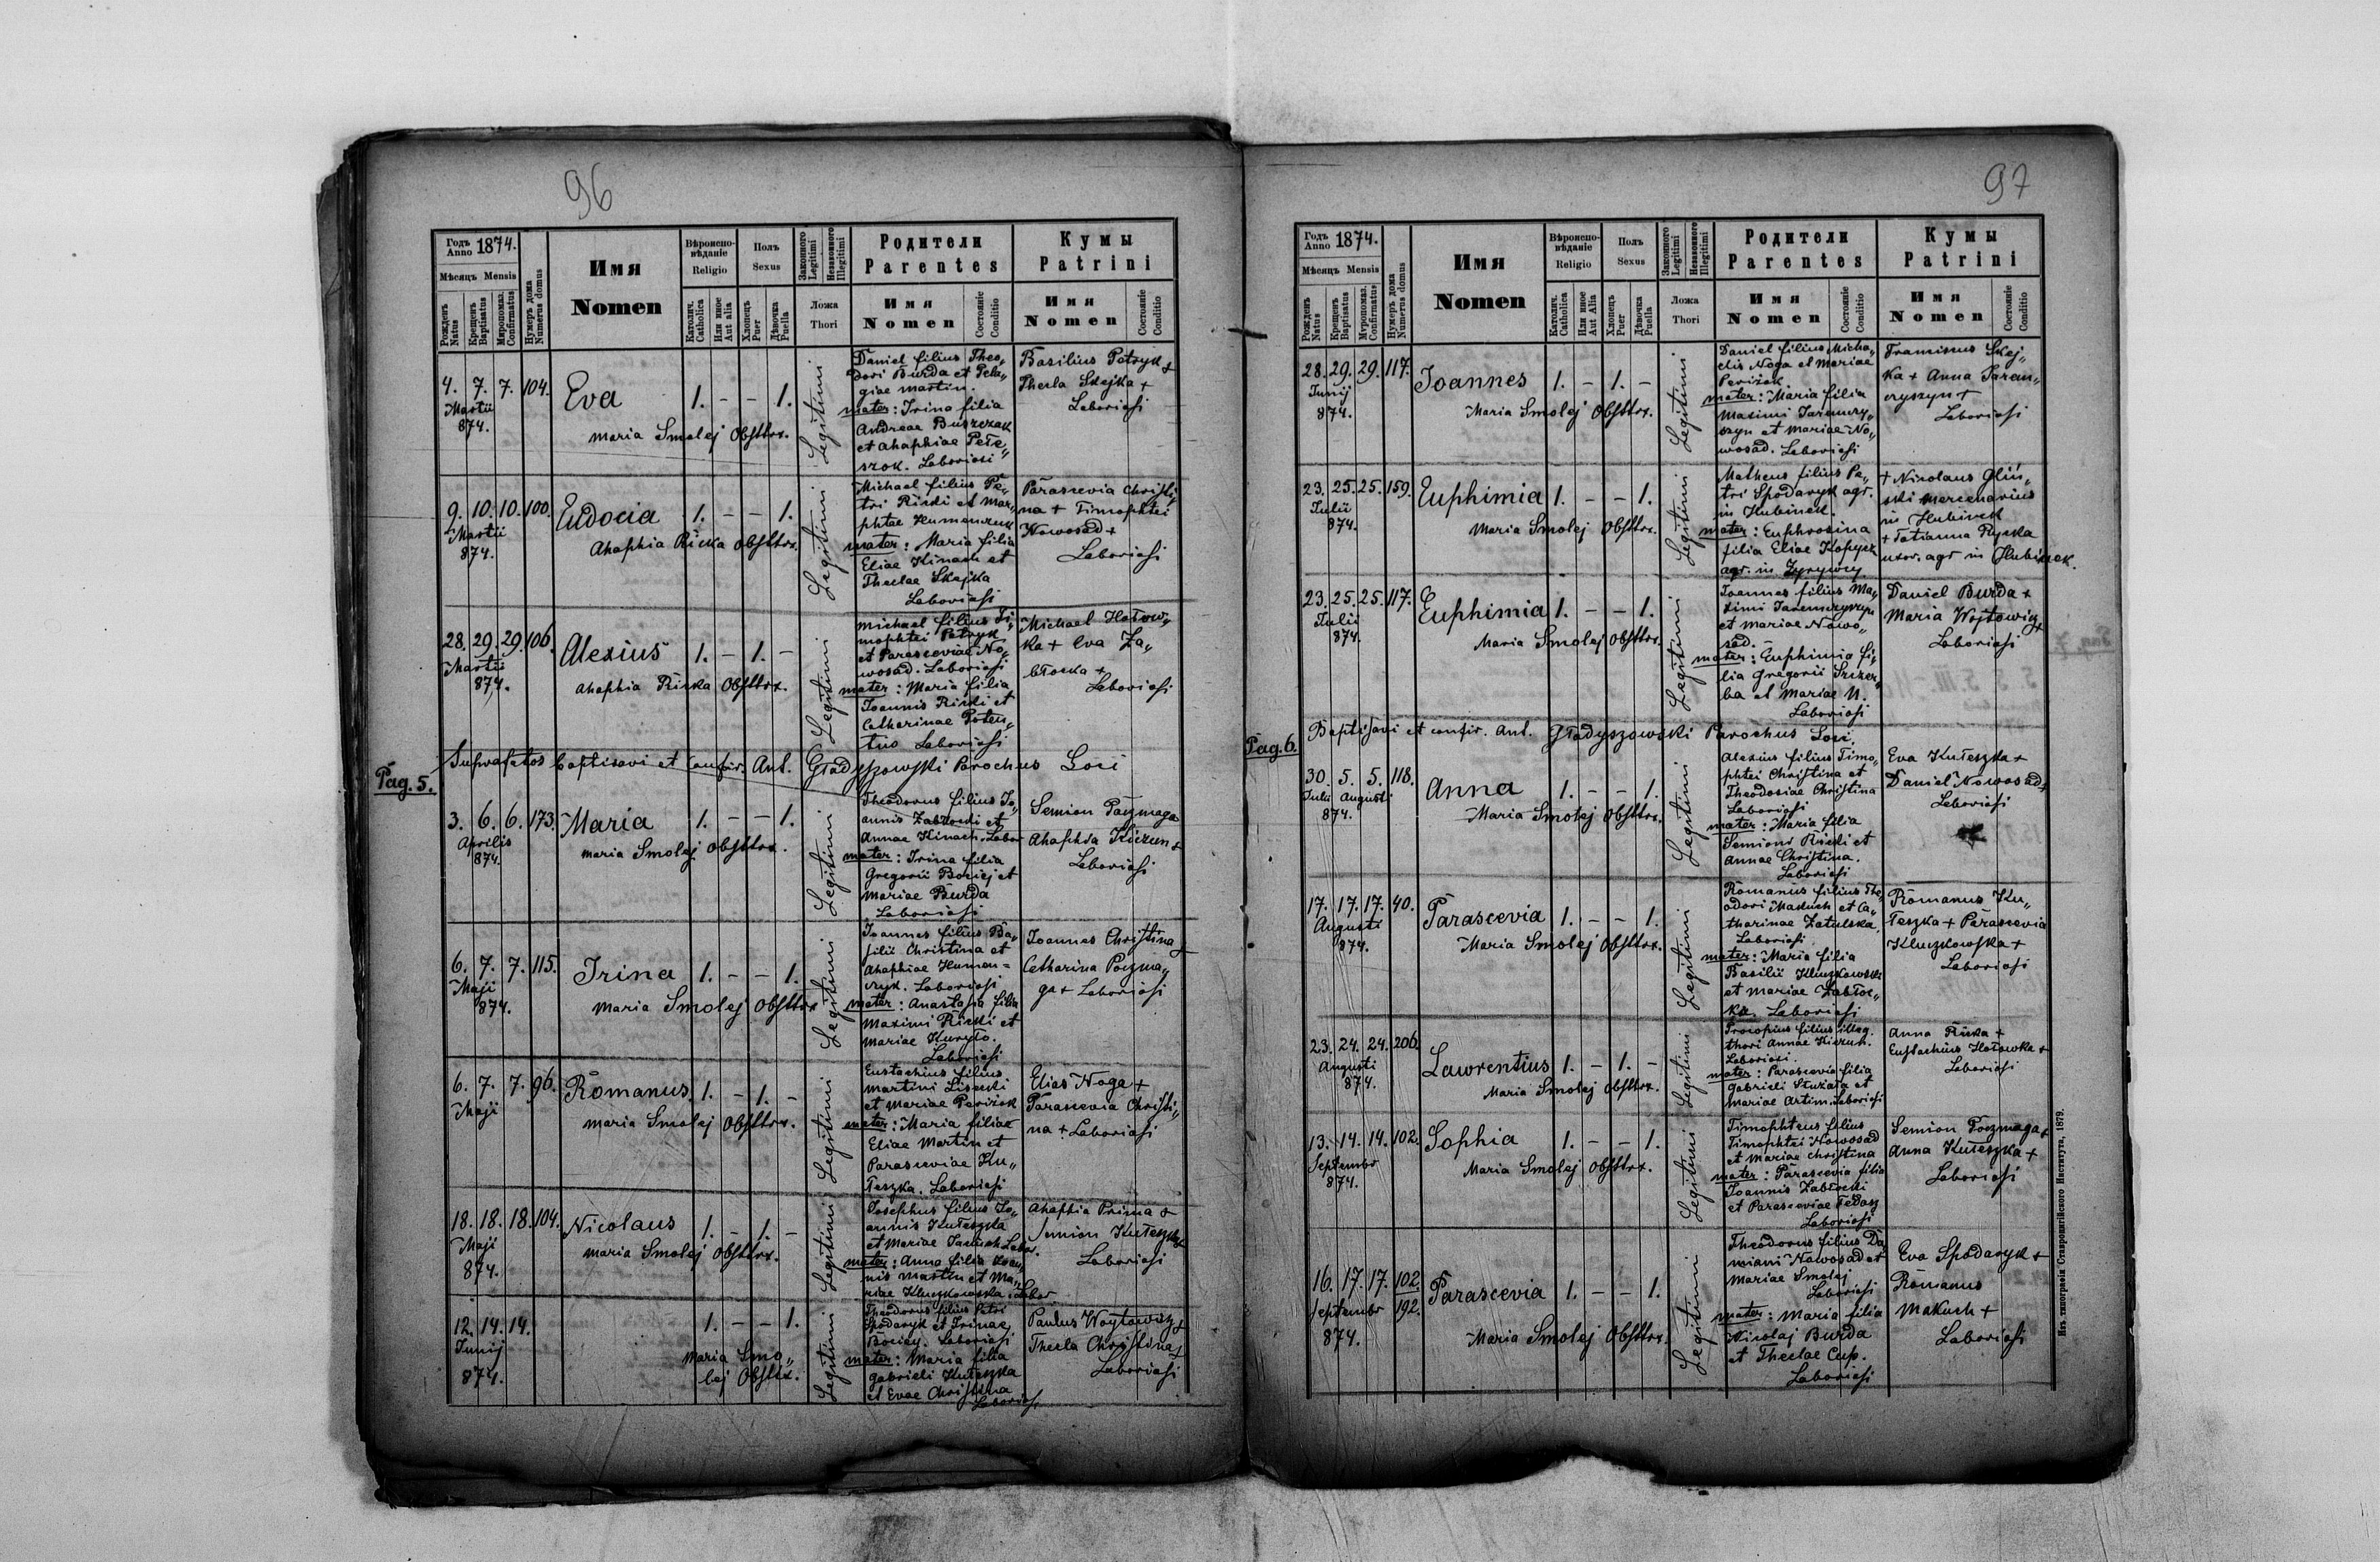 96
Годъ Anno 1874.
Мѣсяцъ Mensis
Рожденъ Natus
Крещенъ Baptisatus
Миропомаз. Confirmatus
Нумеръ дома Numerus domus
Имя Nomen
Вѣроиспо-вѣданіе Religio
Католич. Catholica
Или иное Aut alia
Полъ Sexus
Хлопецъ Puer
Дѣвочка Puella
Законного Legitimi
Незаконного Illegitimi
Ложа Thori
Родители Parentes
Имя Nomen
Состояніе Conditio
Кумы Patrini
Имя Nomen
Состояніе Conditio
4. 7. 7. 104.
Martii
874.
Eva 1. – – 1.
Maria Smolej Obsttrx.
Legitimi
Daniel filius Theo„
dori Burda et Pela„
giae Martin.
mater: Irina filia
Andreae Buszczak
et Ahaphiae Pele„
szok. Laboriosi
Basilius Petryk +
Thecla Skejka +
Laboriosi
9. 10. 10. 100.
Martii
874.
Eudocia 1. – – 1.
Ahaphia Ricka Obsttrx.
Legitimi
Michael filius Pe„
tri Ricki et Mar„
phtae Humenczuk
mater: Maria filia
Eliae Kinach et
Theclae Skejka
Laboriosi
Parascevia Christi„
na + Timophtei
Nowosad +
Laboriosi
28. 29. 29. 106.
Martii
874.
Alexius 1. – 1. –
Ahaphia Ricka Obsttrx.
Legitimi
Michael filius Ti„
mophtei Petryk
et Parasceviae No„
wosad. Laboriosi
mater: Maria filia
Joannis Ricki et
Catharinae Poten„
tuo Laboriosi
Michael Hołow„
ka + Eva Za„
błocka +
Laboriosi
Suprafatos baptisavi et confir. Ant. Gładyszowski Parochus Losi
Pag. 5.
3. 6. 6. 173.
Aprilis
874.
Maria 1. – – 1.
Maria Smolej Obsttrx.
Legitimi
Theodorus filius Jo„
annis Zabłocki et
Annae Kinach. Labor
mater: Irina filia
Gregorii Bociej et
Mariae Burda
Laboriosi
Semion Poczmaga
Ahaphia Kiczun +
Laboriosi
6. 7. 7. 115.
Maji
874.
Irina 1. – – 1.
Maria Smolej Obsttrx
Legitimi
Joannes filius Ba„
silii Christina et
Ahaphiae Humen=
czyk. Laboriosi
mater: Anastasia filia
Maximi Ricki et
Mariae Kuryło.
Laboriosi
Joannes Christina +
Catharina Poczma„
ga + Laboriosi
6. 7. 7. 96.
Maji
Romanus 1. – 1. –
Maria Smolej Obsttrx.
Legitimi
Eustachius filius
Martini Lisecki
et Mariae Perizok
mater: Maria filiae
Eliae Martin et
Parasceviae Ku„
łeszka. Laboriosi
Elias Noga +
Parascevia Christi„
na + Laboriosi
18. 18. 18. 104.
Maji
874.
Nicolaus 1. – 1. –
Maria Smolej Obsttrx.
Legitimi
Josephus filius Jo„
annis Kułeszka
et Mariae Labor.
mater: Anna filia Joan„
nis Martin et Ma„
riae Kluczkowska. Labor
Ahaphia Prima +
Semion Kułeszka
Laboriosi
12. 14. 14.
Junij
874.
1. – – 1.
Maria Smo„
lej Obsttx.
Legitimi
Theodorus filius Petri
Spodaryk et Irinae
Bociej. Laboriosi
mater: Maria filia
Gabrieli Kułeszka
et Evae Christina
Laboriosi
Paulus Woytowicz +
Thecla Christina +
Laboriosi
97
Годъ Anno 1874.
Мѣсяцъ Mensis
Рожденъ Natus
Крещенъ Baptisatus
Муропомаз. Confirmatus
Нумеръ дома Numerus domus
Имя Nomen
Вѣроиспо-вѣданіе Religio
Католич. Catholica
Или иное Aut alia
Полъ Sexus
Хлопецъ Puer
Дѣвочка Puella
Законного Legitimi
Незаконного Illegitimi
Ложа Thori
Родители Parentes
Имя Nomen
Состояніе Conditio
Кумы Patrini
Имя Nomen
Состояніе Conditio
28. 29. 29. 117.
Junij
874.
Joannes 1. – 1. –
Maria Smolej Obsttrx.
Legitimi
Daniel filius Micha„
elis Noga et Mariae
Perizok.
mater: Maria filia
Maximi Taremczy„
szyn et Mariae No„
wosad. Laboriosi
Franciscus Skej„
ka + Anna Tarem„
czyszyn +
Laboriosi
23. 25. 25. 159.
Julii
874.
Euphimia 1. – – 1.
Maria Smolej Obsttrx.
Legitimi
Matheus filius Pe„
tri Spodaryk agr.
in Hubinek.
mater: Euphrosina
filia Eliae Kopycz
agr. in Zyrywcy.
+ Nicolaus Glin„
ski mercenarius
in Hubinek
+ Tatianna Rycka
uxor. agr in Hubinek.
23. 25. 25. 117.
Julii
874.
Euphimia 1. – – 1.
Maria Smolej Obsttrx.
Legitimi
Joannes filius Ma„
ximi Taremczyszyn
et Mariae Nowo„
sad.
mater: Euphimia fi„
lia Gregorii Szczer„
ba et Mariae N.
Laboriosi
Daniel Burda +
Maria Wojtowicz +
Laboriosi
Baptisavi et confir. Ant. Gładyszowski Parochus Losi.
Pag. 6.
30. 5. 5. 118.
Julii Augusti
874.
Anna 1. – – 1.
Maria Smolej Obsttrx.
Legitimi
Alexius filius Timo„
phtei Christina et
Theodosiae Christina
Laboriosi
mater: Maria filia
Semioni Ricki et
Annae Christina.
Laboriosi
Eva Kułeszka +
Daniel Nowosad +
Laboriosi
17. 17. 17. 40.
Augusti
874.
Parascevia 1. – – 1.
Maria Smolej Obsttrx.
Legitimi
Romanus filius The„
odori Makuch et Ca„
tharinae Zatulska,
Laboriosi
mater: Maria filia
Basilii Kluczkowski
et Mariae Zabłoc„
ka. Laboriosi
Romanus Ku„
łeszka + Parascevia
Kluczkowska +
Laboriosi
23. 24. 24. 206.
Augusti
874.
Lawrentius 1. – 1. –
Maria Smolej Obsttrx.
Legitimi
Procopius filius illeg.
thori Annae Kiczuh.
Laboriosi.
mater: Parascevia filia
Gabrieli Służała et
Mariae Artim. Laboriosi
Anna Ricka +
Eustachius Hołowka +
Laboriosi
13. 14. 14. 102.
Septembr
874.
Sophia 1. – – 1.
Maria Smolej Obsttrx.
Legitimi
Timophteus filius
Timophtei Nowosad
et Mariae Christina
mater: Parascevia filia
Joannis Zabłocki
et Parasceviae Fedasz
Laboriosi
Semion Poczmaga +
Anna Kułeszka +
Laboriosi
16. 17. 17. 102
192.
Septembr
874.
Parascevia 1. – – 1.
Maria Smolej Obsttrx.
Legitimi
Theodorus filius Da
miani Nowosad et
Mariae Smolej
Laboriosi
mater: Maria filia
Nicolaj Burda
et Theclae Cup.
Laboriosi
Eva Spodaryk +
Romanus
Makuch +
Laboriosi
Изъ типографіи Ставропигійского Института, 1879.